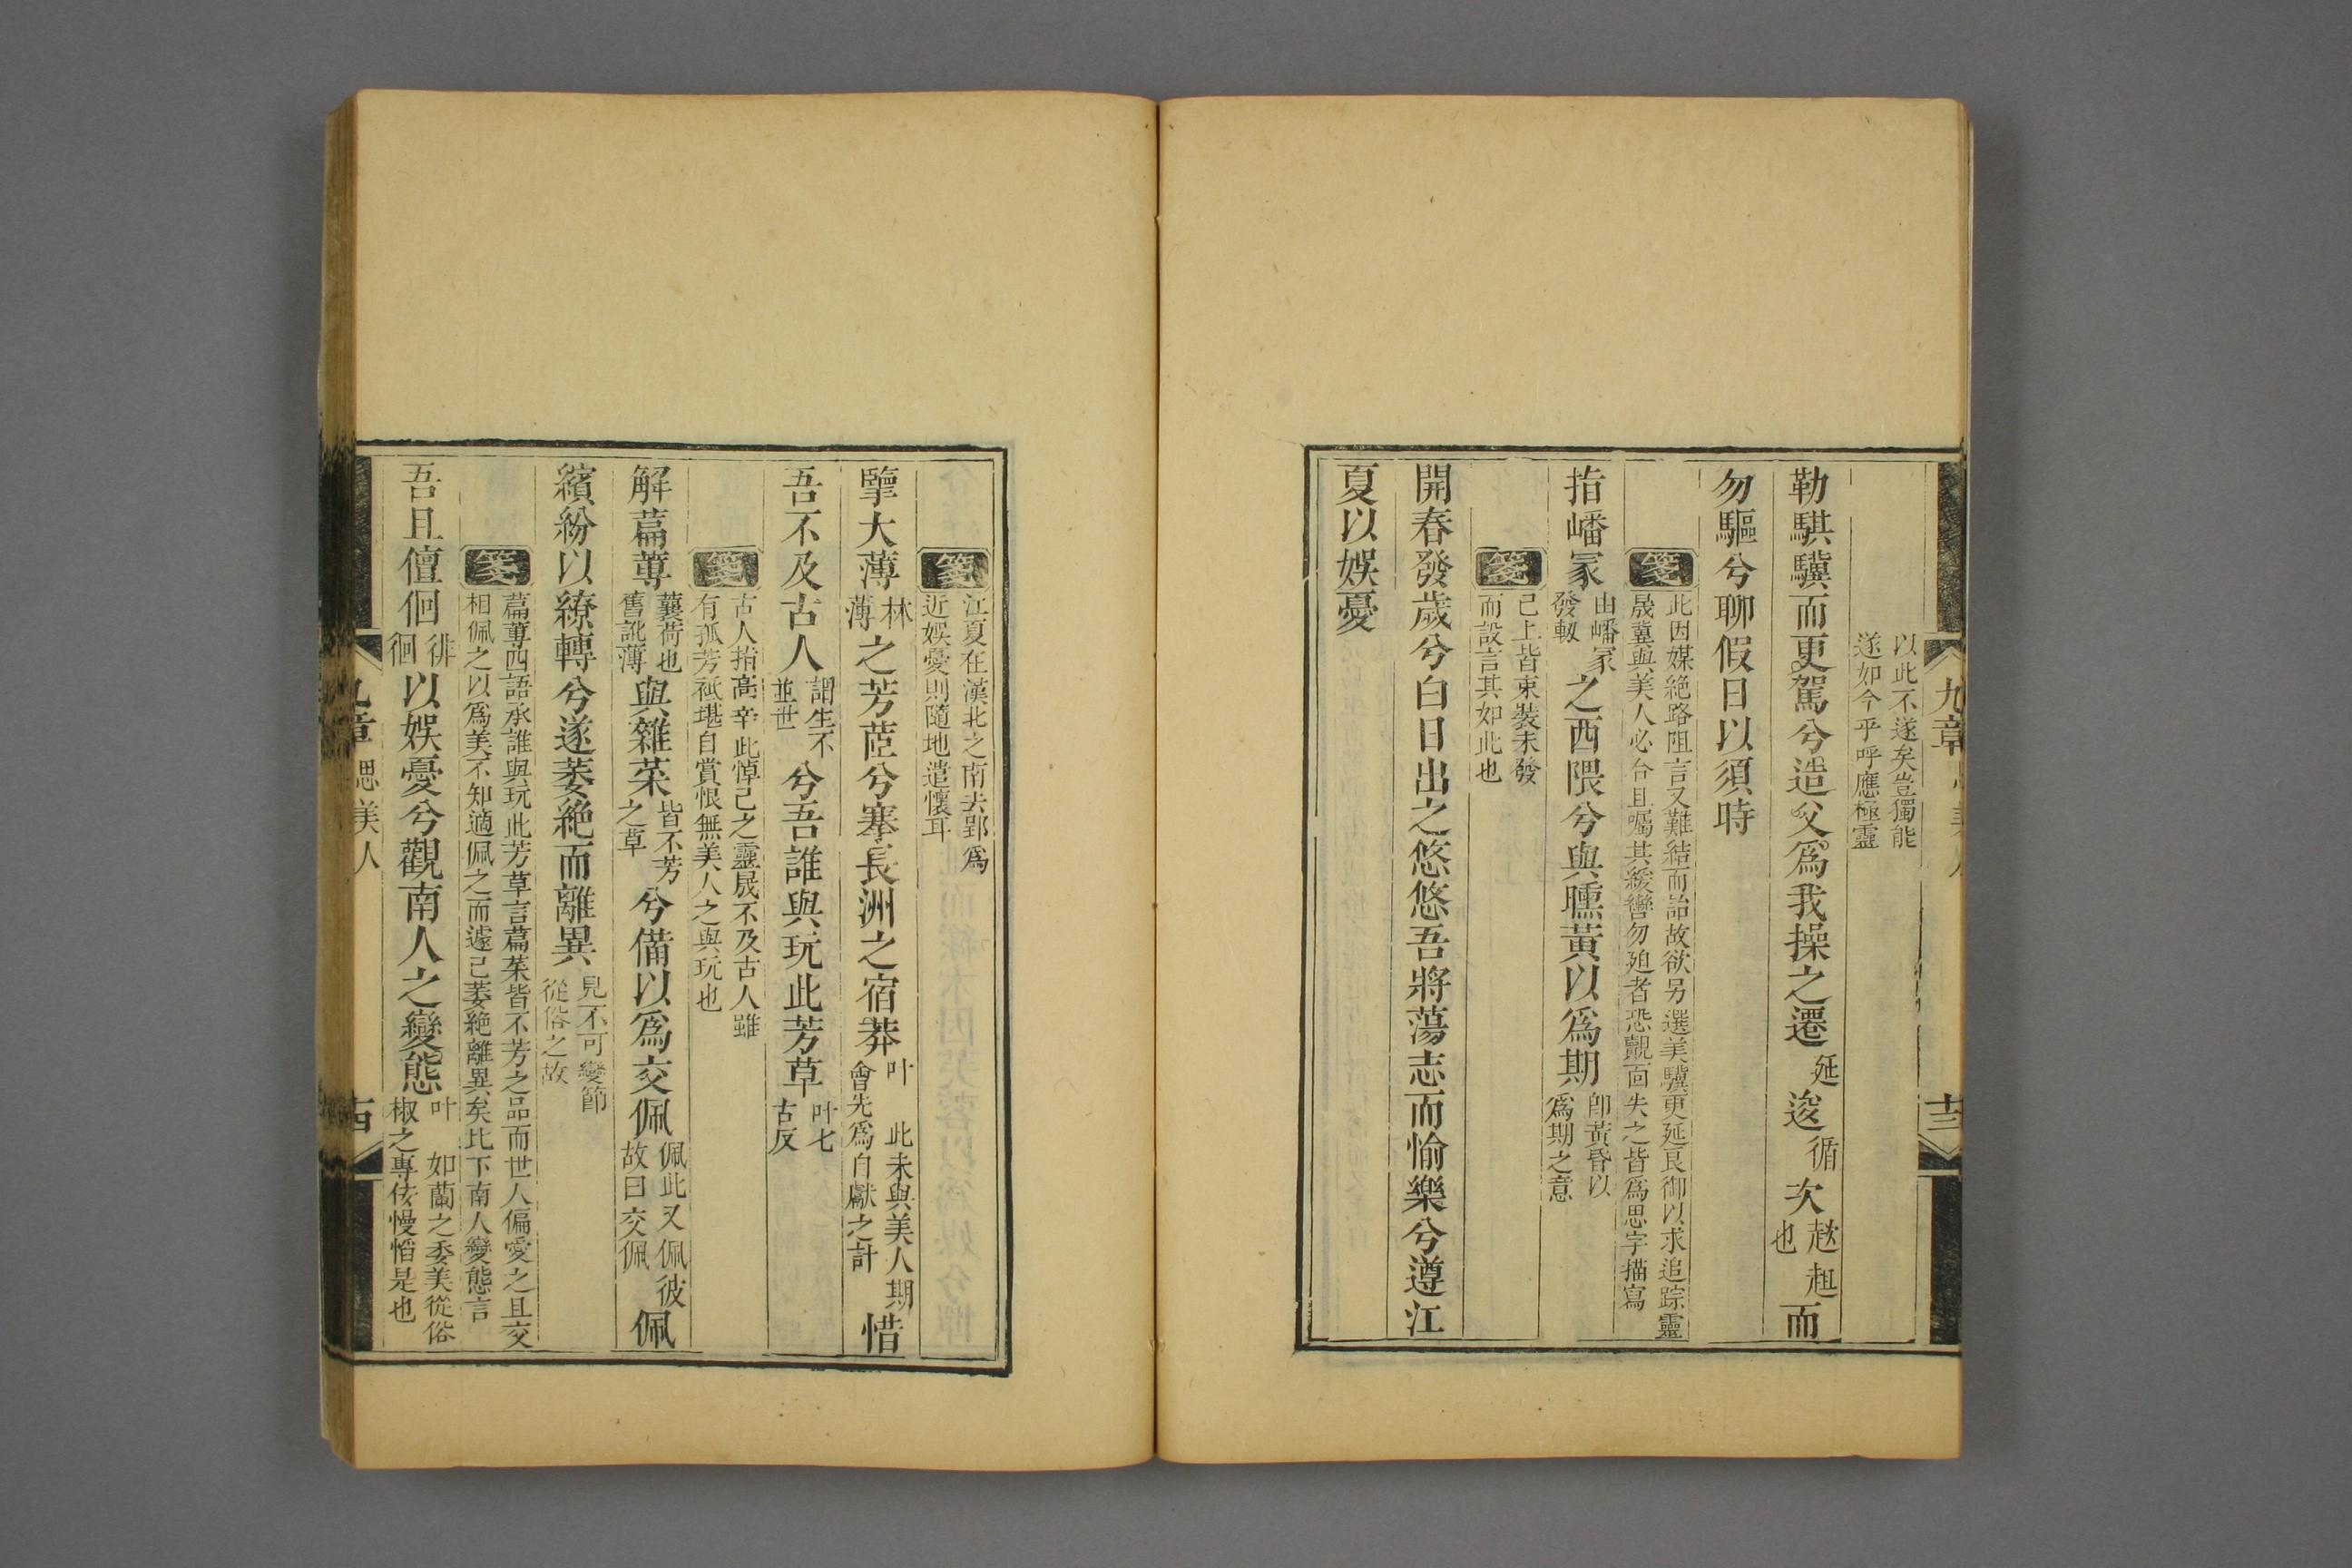 以此不遂矣豈獨能
遂如今乎呼應極靈
勒騏驥而更駕兮造父爲我操之遷延逡循次趑趄也而
勿驅兮聊假日以須時
箋
此因媒絶路阻言又難結而詒故欲另選美驥更延良御以求追踪靈
晟冀與美人必合且囑其緩轡勿廹者恐覿面失之皆爲思字描寫
指嶓冢由嶓冢發軔之西隈兮與曛黃以爲期卽黃昏以爲期之意
箋
已上皆束裝未發
而設言其如此也
開春發歲兮白日出之悠悠吾將蕩志而愉樂兮遵江
夏以娛憂
九章
十三
箋
江夏在漢北之南去郢爲
近娛憂則隨地遣懷耳
擥大薄林薄之芳茝兮搴長洲之宿莽叶 此未與美人期會先爲自獻之計惜
吾不及古人謂生不並世兮吾誰與玩此芳草叶七古反
箋
古人指高辛此悼己之靈晟不及古人雖
有孤芳祗堪自賞恨無美人之與玩也
解萹薄蘘荷也舊訛薄與雜菜皆不芳之草兮備以爲交佩佩此又佩彼故曰交佩佩
繽紛以繚轉兮遂萎絶而離異見不可變節從俗之故
箋
萹蓴四語承誰與玩此芳草言萹菜皆不芳之品而世人偏愛之且交
相佩之以爲美不知適佩之而遽已萎絶離異矣比下南人變態言
吾且儃佪徘徊以娛憂兮觀南人之變態叶 如蘭之委美從俗椒之專佞慢慆是也
九章 思美人
十四